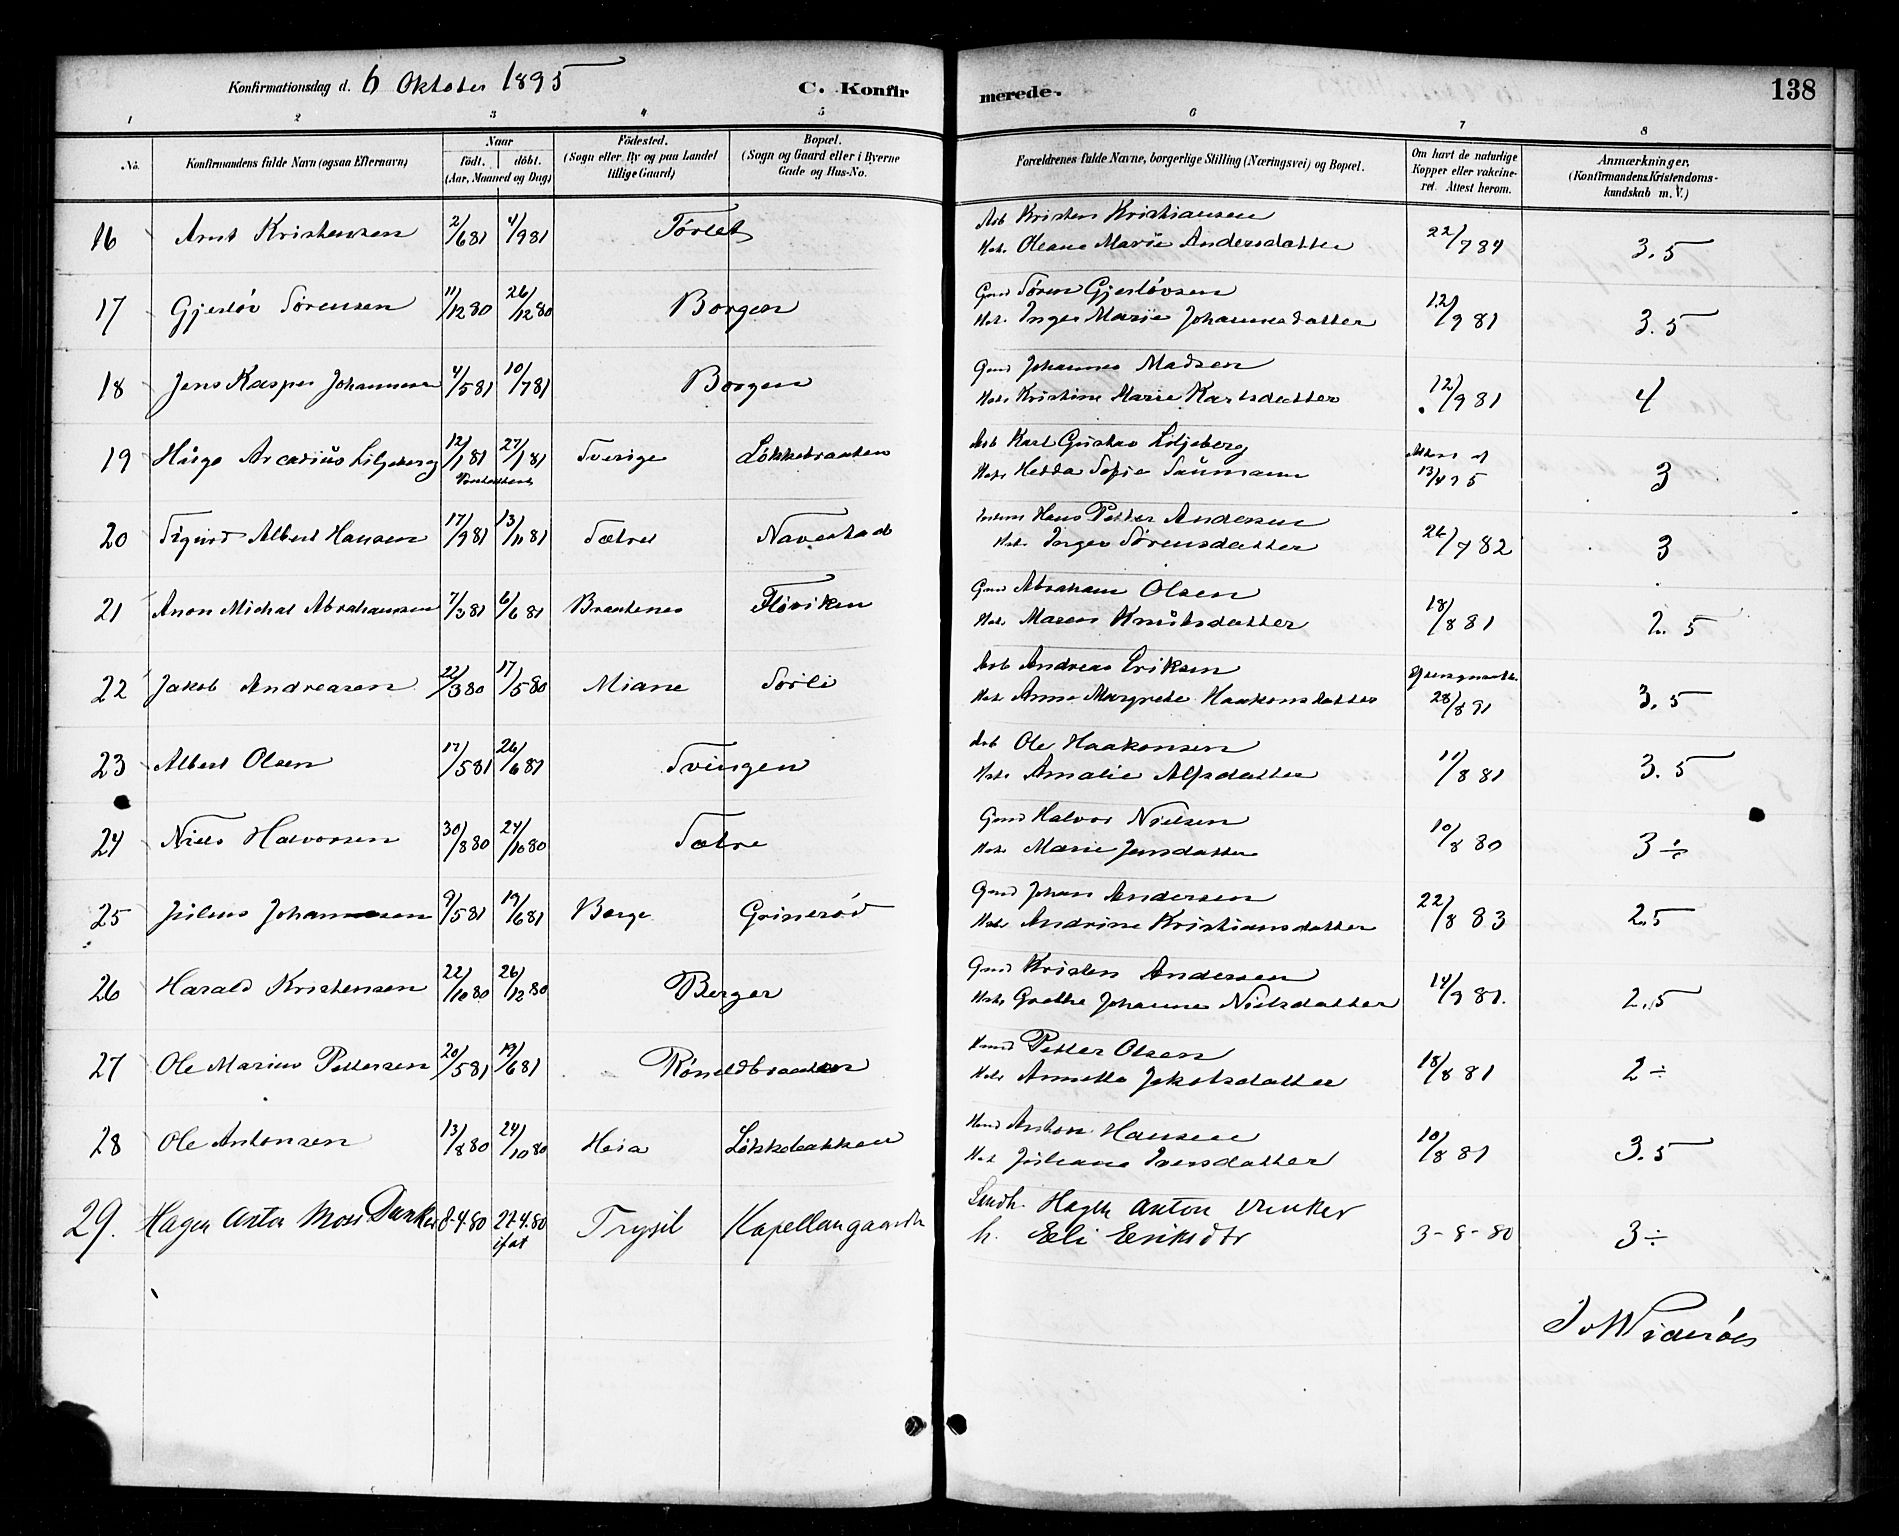 Konfirmationsdag d. 6 Oktober 1895 C. Konfir merede. 138
1 2 3 4 5 6 7 8
No. Konfirmandens fulde Navn (ogsaa Efternavn) Naar födt. döbt. (Aar, Maaned og Dag) Födested. (Sogn eller By og paa Landet tillige Gaard) Bopæl. (Sogn og Gaard eller i Byerne Gade og Hus-No. Forældrenes fulde Navne, borgerlige Stilling (Næringsvei) og Bopæl. Om havt de naturlige Kopper eller vakcineret. Attest herom. Anmærkninger. (Konfirmandens Kristendomskundskab m. V.)
16 Arnt Kristensen 2/6 81 4/9 81 Törlet Arb Kristen Kristiansen 22/7 84 3.5
Hst. Oleane Marie Andersdatter
17 Gjerlöv Sörensen 11/12 80 26/12 80 Borgen Gmd Sören Gjerlövsen 12/9 81 3.5
Hst. Inger Marie Johannesdatter
18 Jens Kasper Johannesen 4/5 81 10/7 81 Borgen Gmd Johannes Madsen 12/9 81 4
Hst. Kristine Marie Karlsdatter
19 Hugo Arcadius Liljeberg 12/1 81 27/1 81 Sverige Lökkebraaten Arb Karl Gustav Liljeberg 3
Hst. Hedda Sofie 13/4 95
20 Sigurd Albert Hansen 17/9 81 13/11 81 Sætre Navestad Hans Petter Andersen 26/7 82 3
Hst. Inger Sörensdatter
21 Anon Michal Abrahamsen 7/3 81 6/6 81 Braatenes Flöviken Gmd Abraham Olsen 18/8 81 2.5
Hst. Maren Knutsdatter
22 Jakob Andreasen 22/3 80 17/5 80 Miane Sörli Arb Andreas Eriksen 3.5
Hst. Anne Margrete Haakonsdatter 28/8 91
23 Albert Olsen 17/5 81 26/6 81 Svingen Arb Ole Haakonsen 11/8 81 3.5
Hst. Amalie Alfsdatter
24 Niels Halvorsen 30/8 80 24/10 80 Sætre Gmd Halvor Nielsen 10/8 80 3÷
Hst. Marie Jensdatter
25 Julius Johannesen 9/5 81 19/6 81 Berge Grinerød Gmd Johan Andersen 22/8 83 2.5
Hst. Andrine Kristiansdatter
26 Harald Kristensen 22/10 80 26/12 80 Berger Gmd Kristen Andersen 14/9 81. 2.5
Hst. Grethe Johanne Nielsdatter
27 Ole Marius Pettersen 20/5 81 19/6 81 Petter Olsen 18/8 81 2÷
Hst. Annette Jakobsdatter
28 Ole Antonsen 13/8 80 24/10 80 Heia Lökkebakken Anton Hansen 10/8 81 3.5
Hst Juliane Iversdatter
29. Hagen Anton Moss Dunker 8-4.80 27-4.80 Trysil Kapellangaarden Hagen Anton Dunker 3-8-80 3÷
ifat h. Eli Eriksdtr